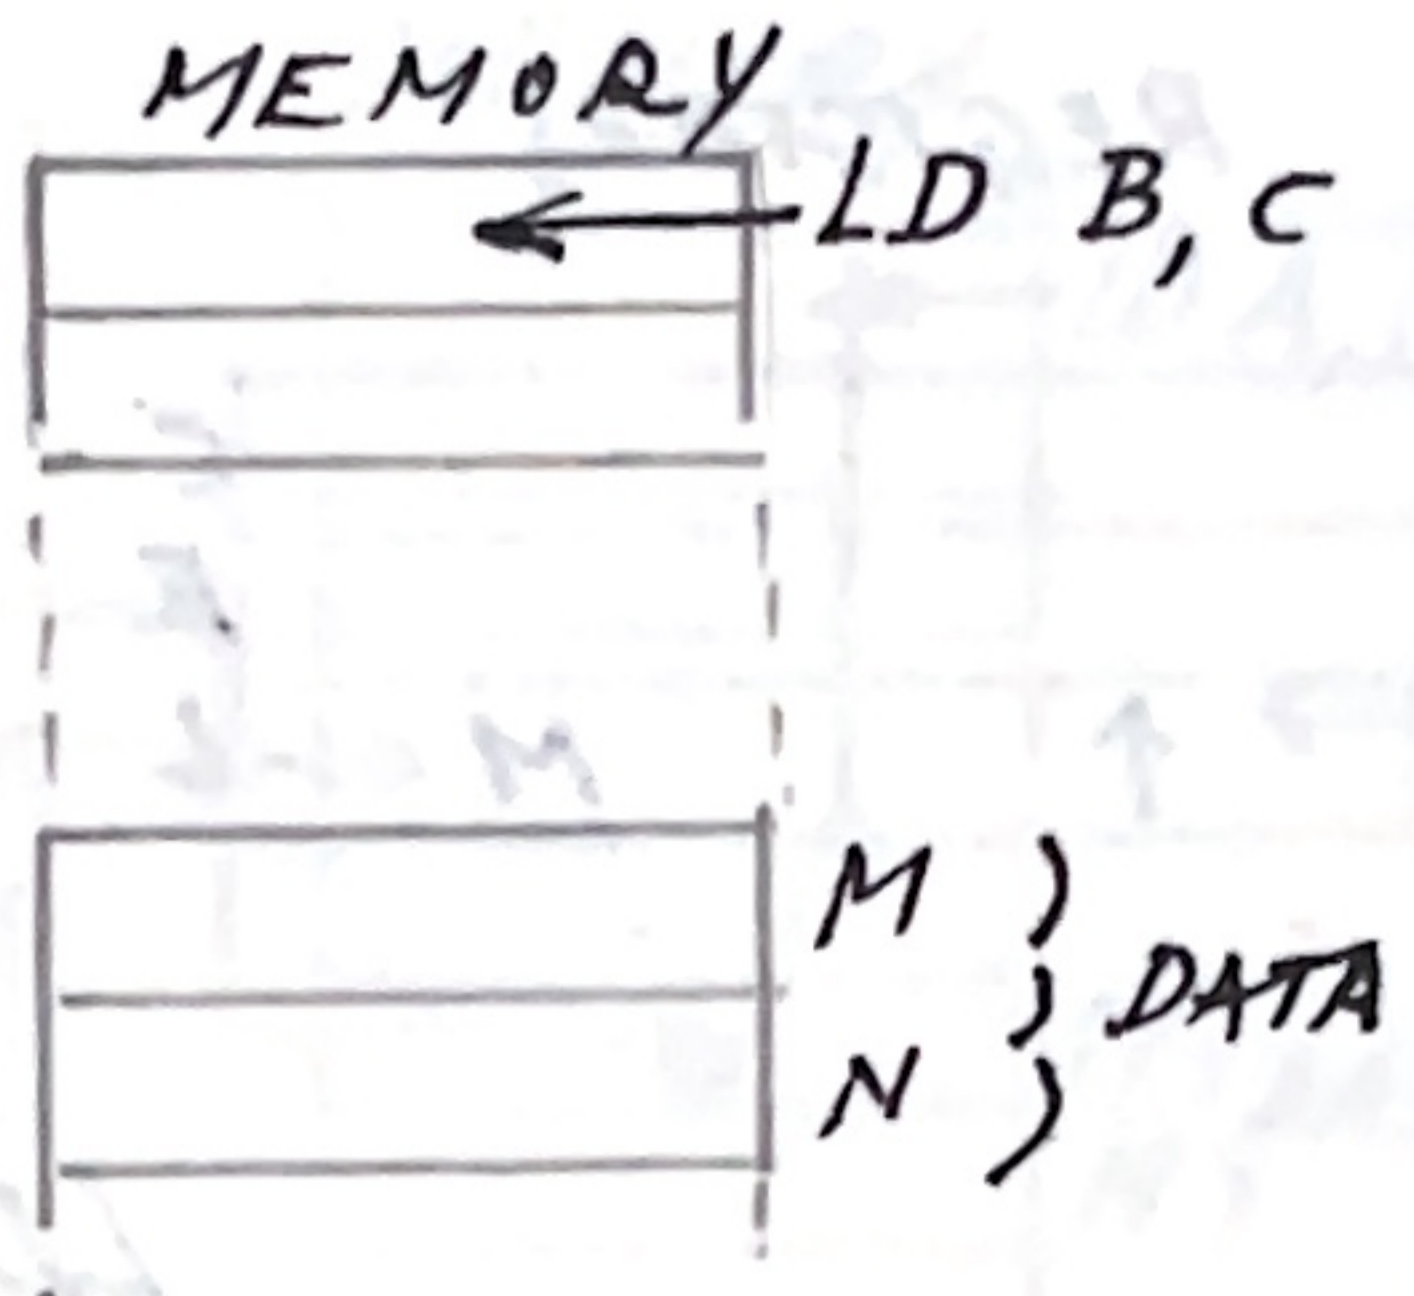 MEMORY
LD B, C
M
DATA
N